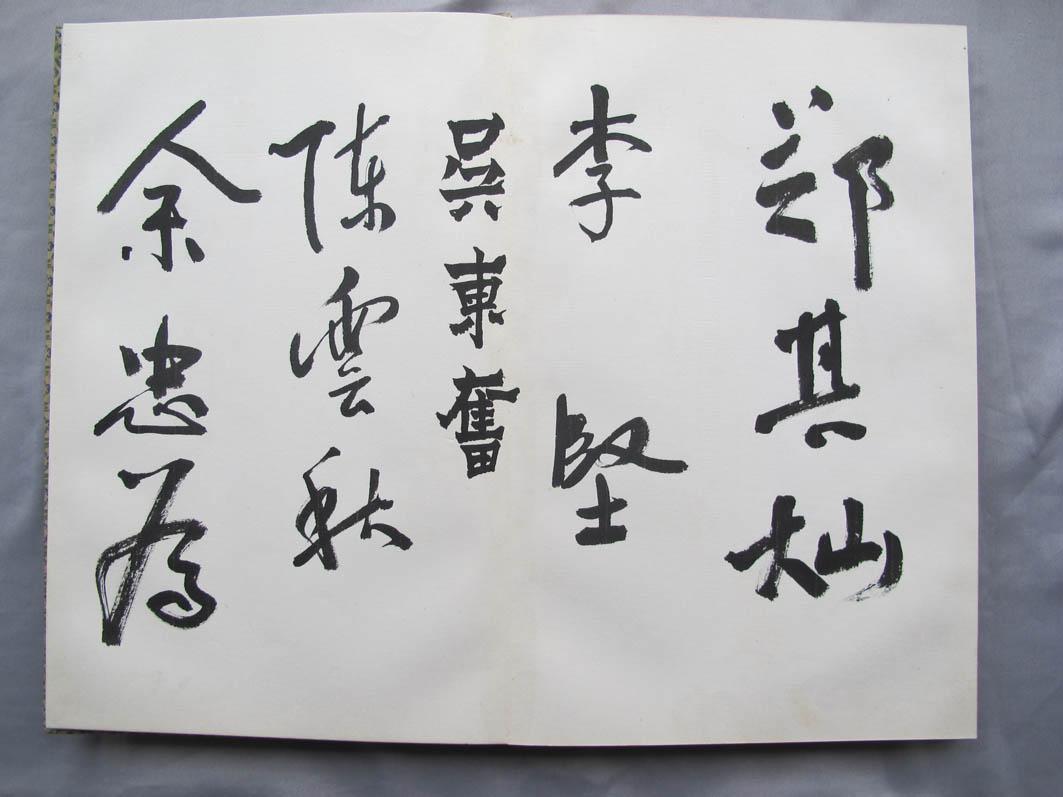 郑其灿
李堅
吳東奮
陳雲秋
余忠为